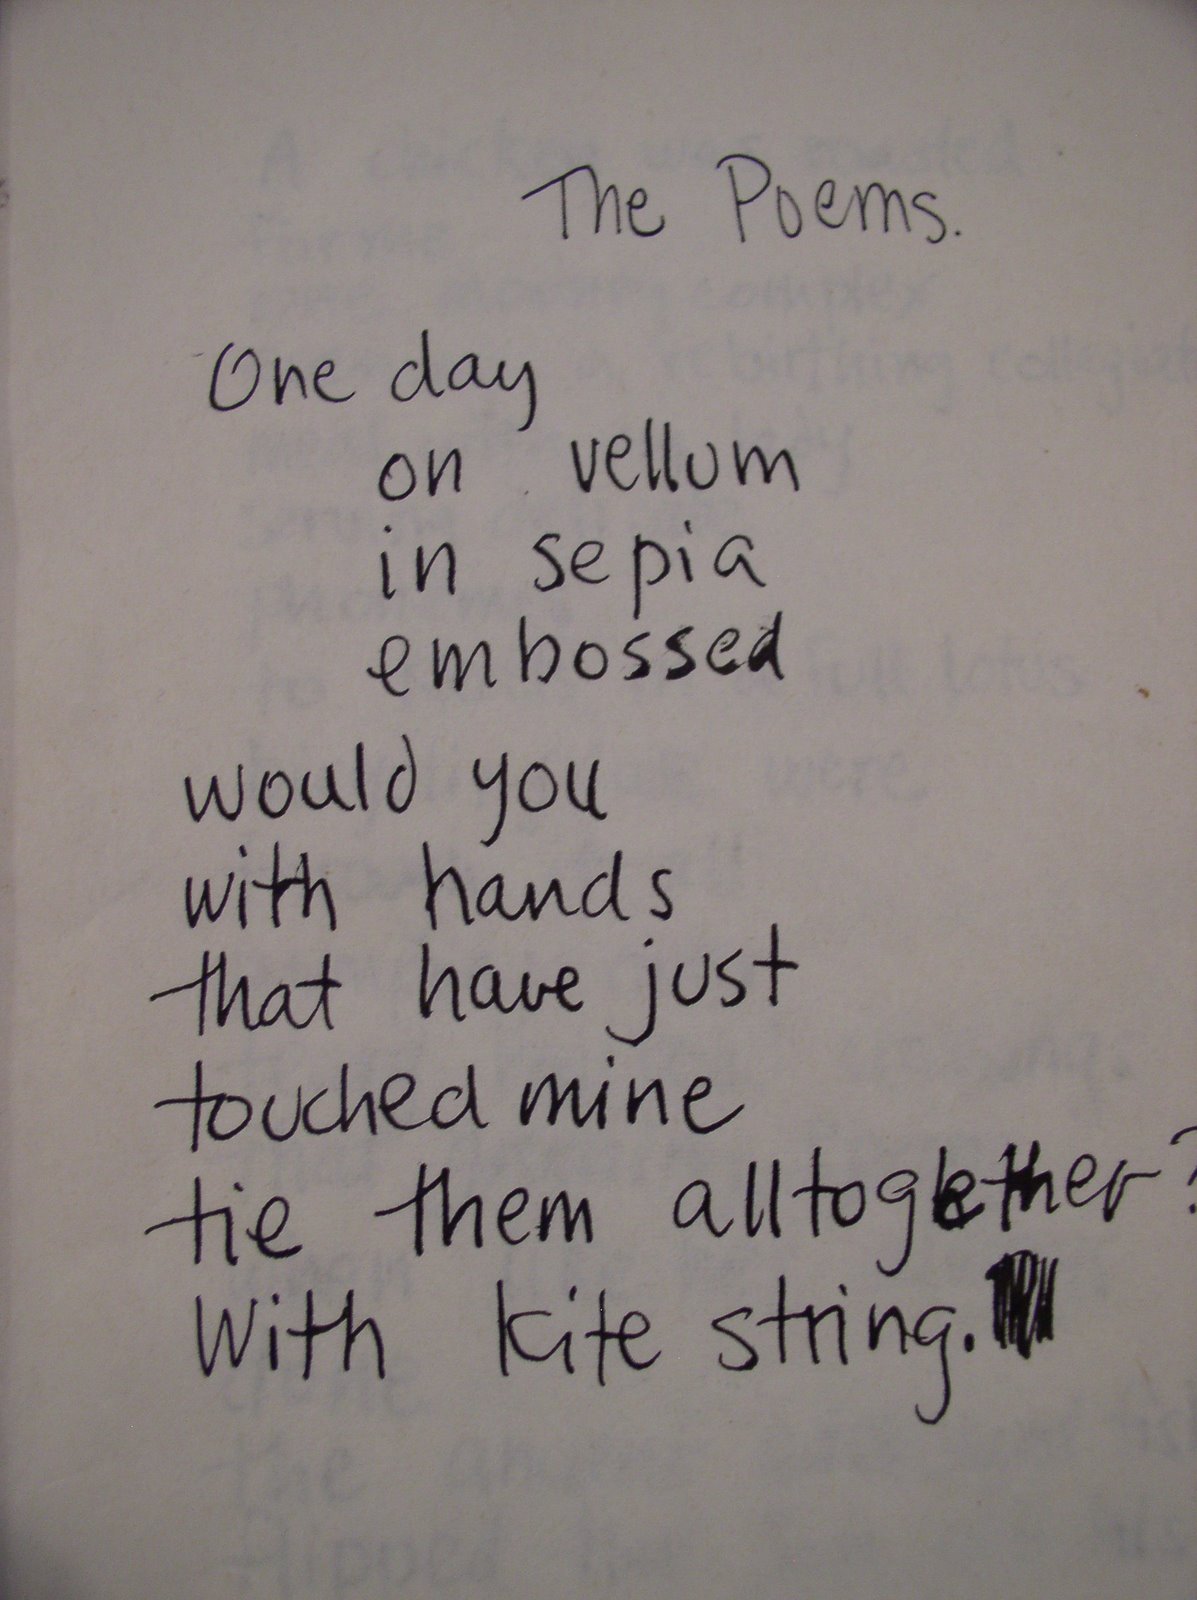 The Poems.
One day
on vellum
in sepia
embossed
would you
with hands
that have just
touched mine
tie them alltogether?
With kite string.